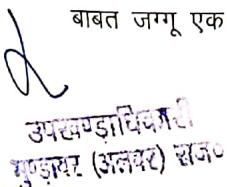 बाबत जग्गू एक
उपखण्डाधिकारी
मुण्डावर (अलवर) राज०